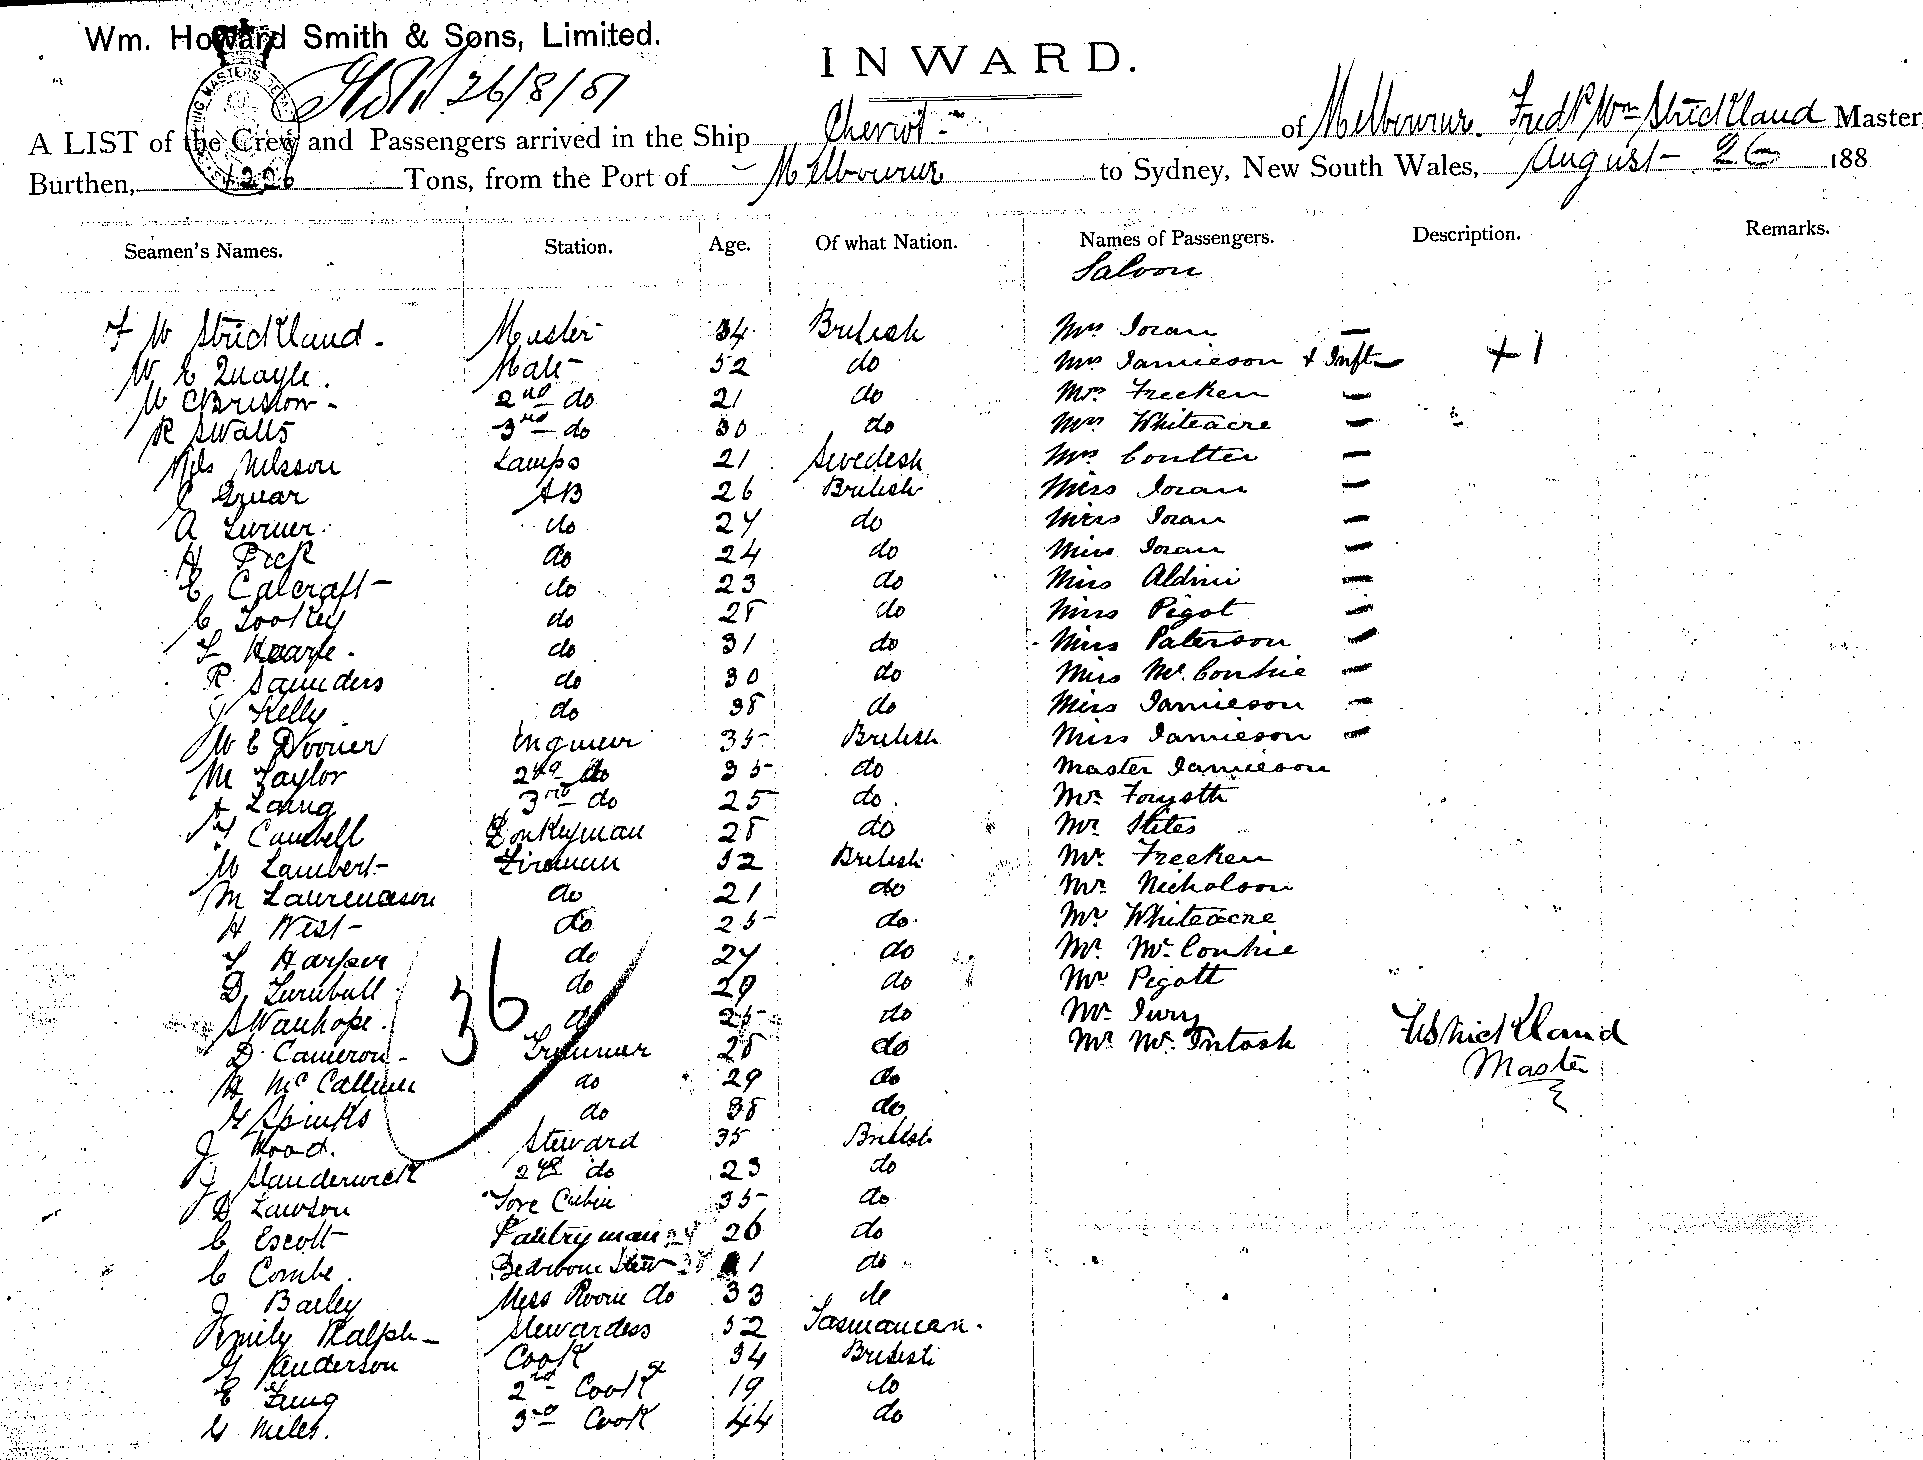 Wm. Howard Smith & Sons, Limited.
INWARD.
26/8/87
A LIST of the Crew and Passengers arrived in the Ship Cheviot of Melbourne. Fredk Wm Strickland Master
Burthen, 1226 Tons, from the Port of Melbourne to Sydney, New South Wales, August 26 188
Seamen's Names. Station. Age. Of what Nation. Names of Passengers. Description. Remarks.
Saloon
F W Strickland Master 34 British Mrs Joran
W E Quayle. Mate 52 do Mrs Jamieson + Inft + 1
W C Bristow 2nd do 21 do Mrs Frecken
R Swalls 3rd do 30 do Mrs Whiteacre
Nils Nilsson Lamps 21 Swedish Mrs Coulter
Gruar AB 26 British Miss Joran
A Turner. do 27 do Miss Joran
H Peck do 24 do Miss Joran
E Calcraft do 23 do Miss Aldini
C Tookey do 28 do Miss Pigot
do 31 do Miss Paterson
R Saunders do 30 do Miss McConhie
J Kelly do 38 do Miss Jamieson
W E Dooner Engineer 35 British Miss Jamieson
M Taylor 2nd do 35 do Master Jamieson
A Laing 3rd do 25 do Mr Forysth
Cambell Donkeyman 28 do Mr Stites
W Lambert Fireman 32 British Mr Frecken
M Laurenason do 21 do Mr Nicholson
H West do 25 do Mr Whiteacre
Harper do 27 do Mr McConhie
D Turnbull do 29 do Mr Pigott
S Wanhope. do 25 do Mr Jury
D Cameron Trimmer 28 do Mr McIntosh
H McCallum do 29 do
G Spinks do 38 do
36
FW Strickland
Master
J Wood. Steward 35 British
J Standerwick 2nd do 23 do
D Lawson Fore Cabin 35 do
C Escott Pantryman 26 do
C Combe. Bedroom Stew 1 do
J Barley Mess Room do 33 do
Emily Ralph Stewardess 32 Tasmanian.
G Anderson Cook 34 British
E Fung 2nd Cook 19 do
G Miles. 3rd Cook 44 do